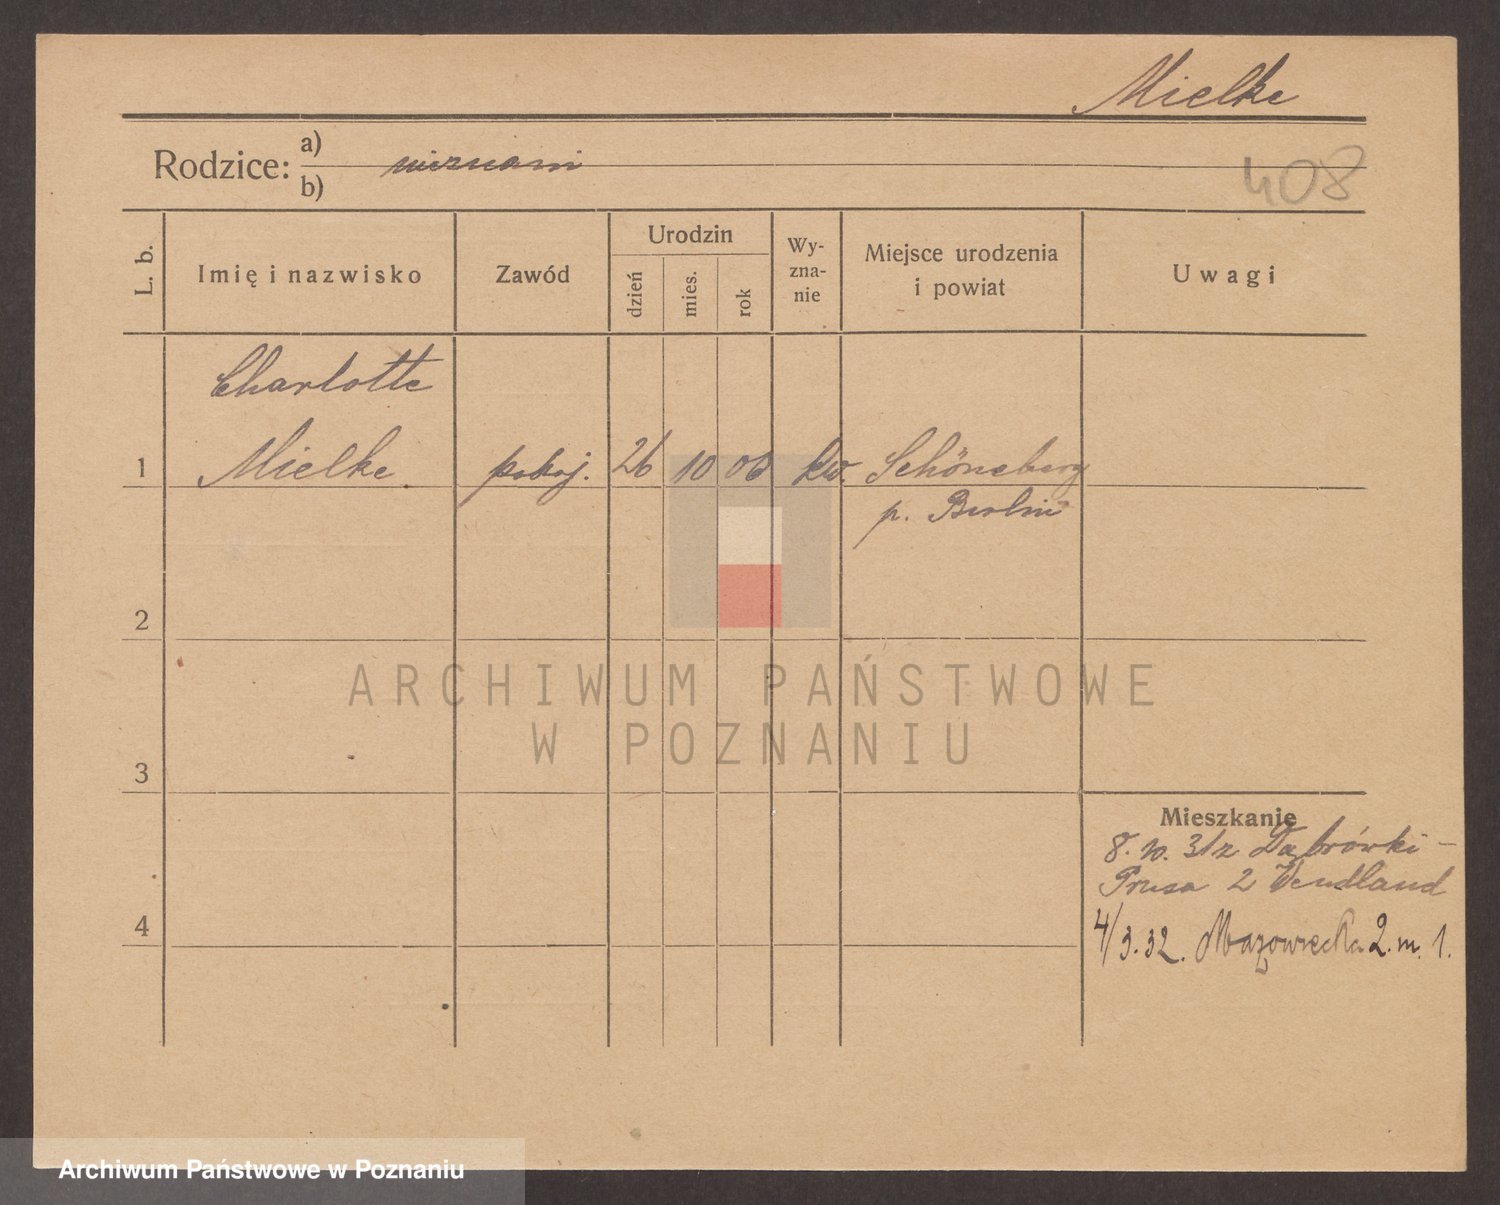 Mielke
Rodzice: a)
b)
nieznani
408
L. b.
Imię i nazwisko
Zawód
Urodzin
dzień
mies.
rok
Wy-
zna-
nie
Miejsce urodzenia
i powiat
Uwagi
Charlotte
1 Mielke. pokoj. 26 10 06 Schöneberg
p. Berlin
2
3
4
Mieszkanie
8. 10. 31 z Dąbrówki -
Prusa 2 Wendland
4/3.32. Mazowiecka 2. m. 1.
ARCHIWUM PAŃSTWOWE
W POZNANIU
Archiwum Państwowe w Poznaniu